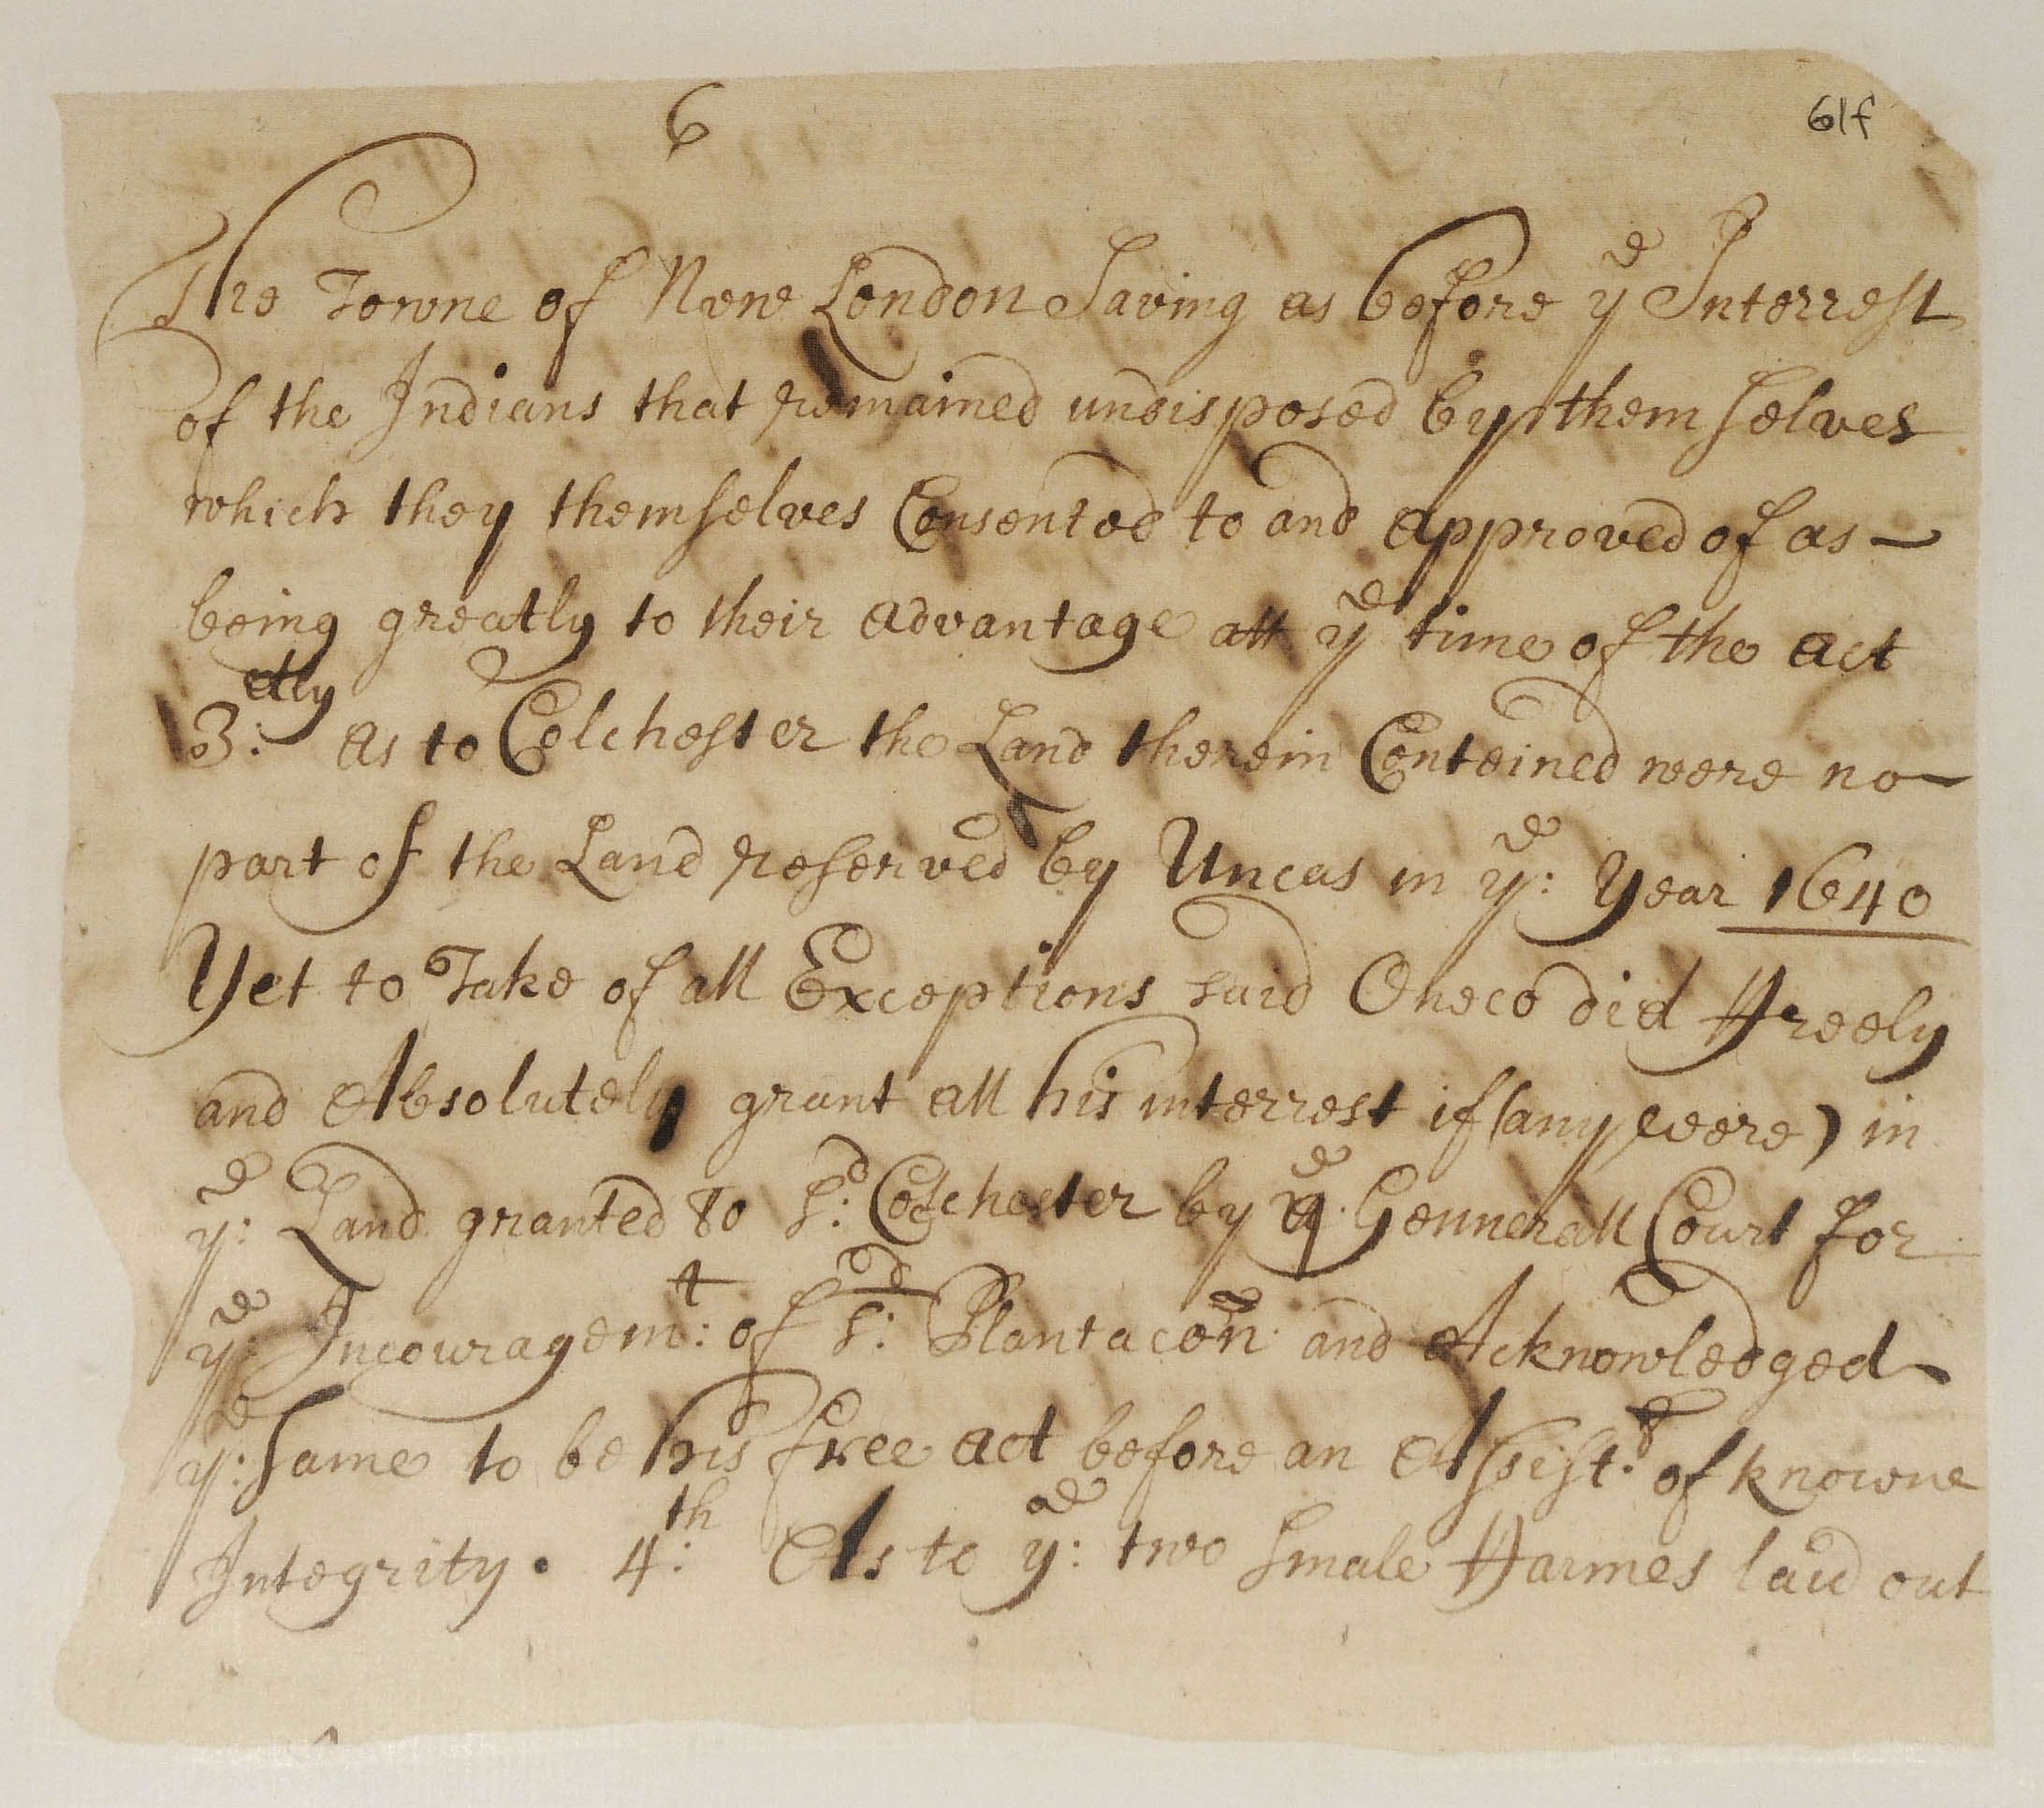 6
61f
The Towne of New London Saving as before ye Interrest
of the Indians that remained undisposed by them selves
which they themselves Consented to and approved of as —
being greatly to their advantage att ye time of the act
3:dly as to Colchester the Land therein Conteined were no —
part of the Land reserved by Uncas in ye: Year 1640
Yet to Take of all Exceptions said Oneco did ffreely
and Absolutely grant all his interrest if (any were) in
ye: Land granted to sd: Colchester by ye: Gennerall Court for
ye: Incouragemt: of sd: Plantacon and Acknowledged
ye: same to be his free act before an Assist: of knowne
Integrity. 4:th As to ye: two smale ffarmes laid out